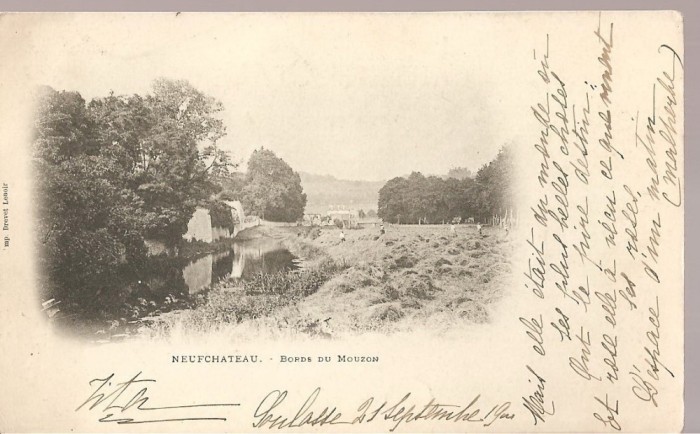 NEUFCHATEAU. - BORDS DU MOUZON
Soulosse 21 Septembre 1900
Mais elle était du monde où
les plus belles choses
Ont le pire destin,
Et rose elle a vécu ce que vivent
les roses,
L'espace d'un matin
(Malherbe)
imp. Brevet Lenoir